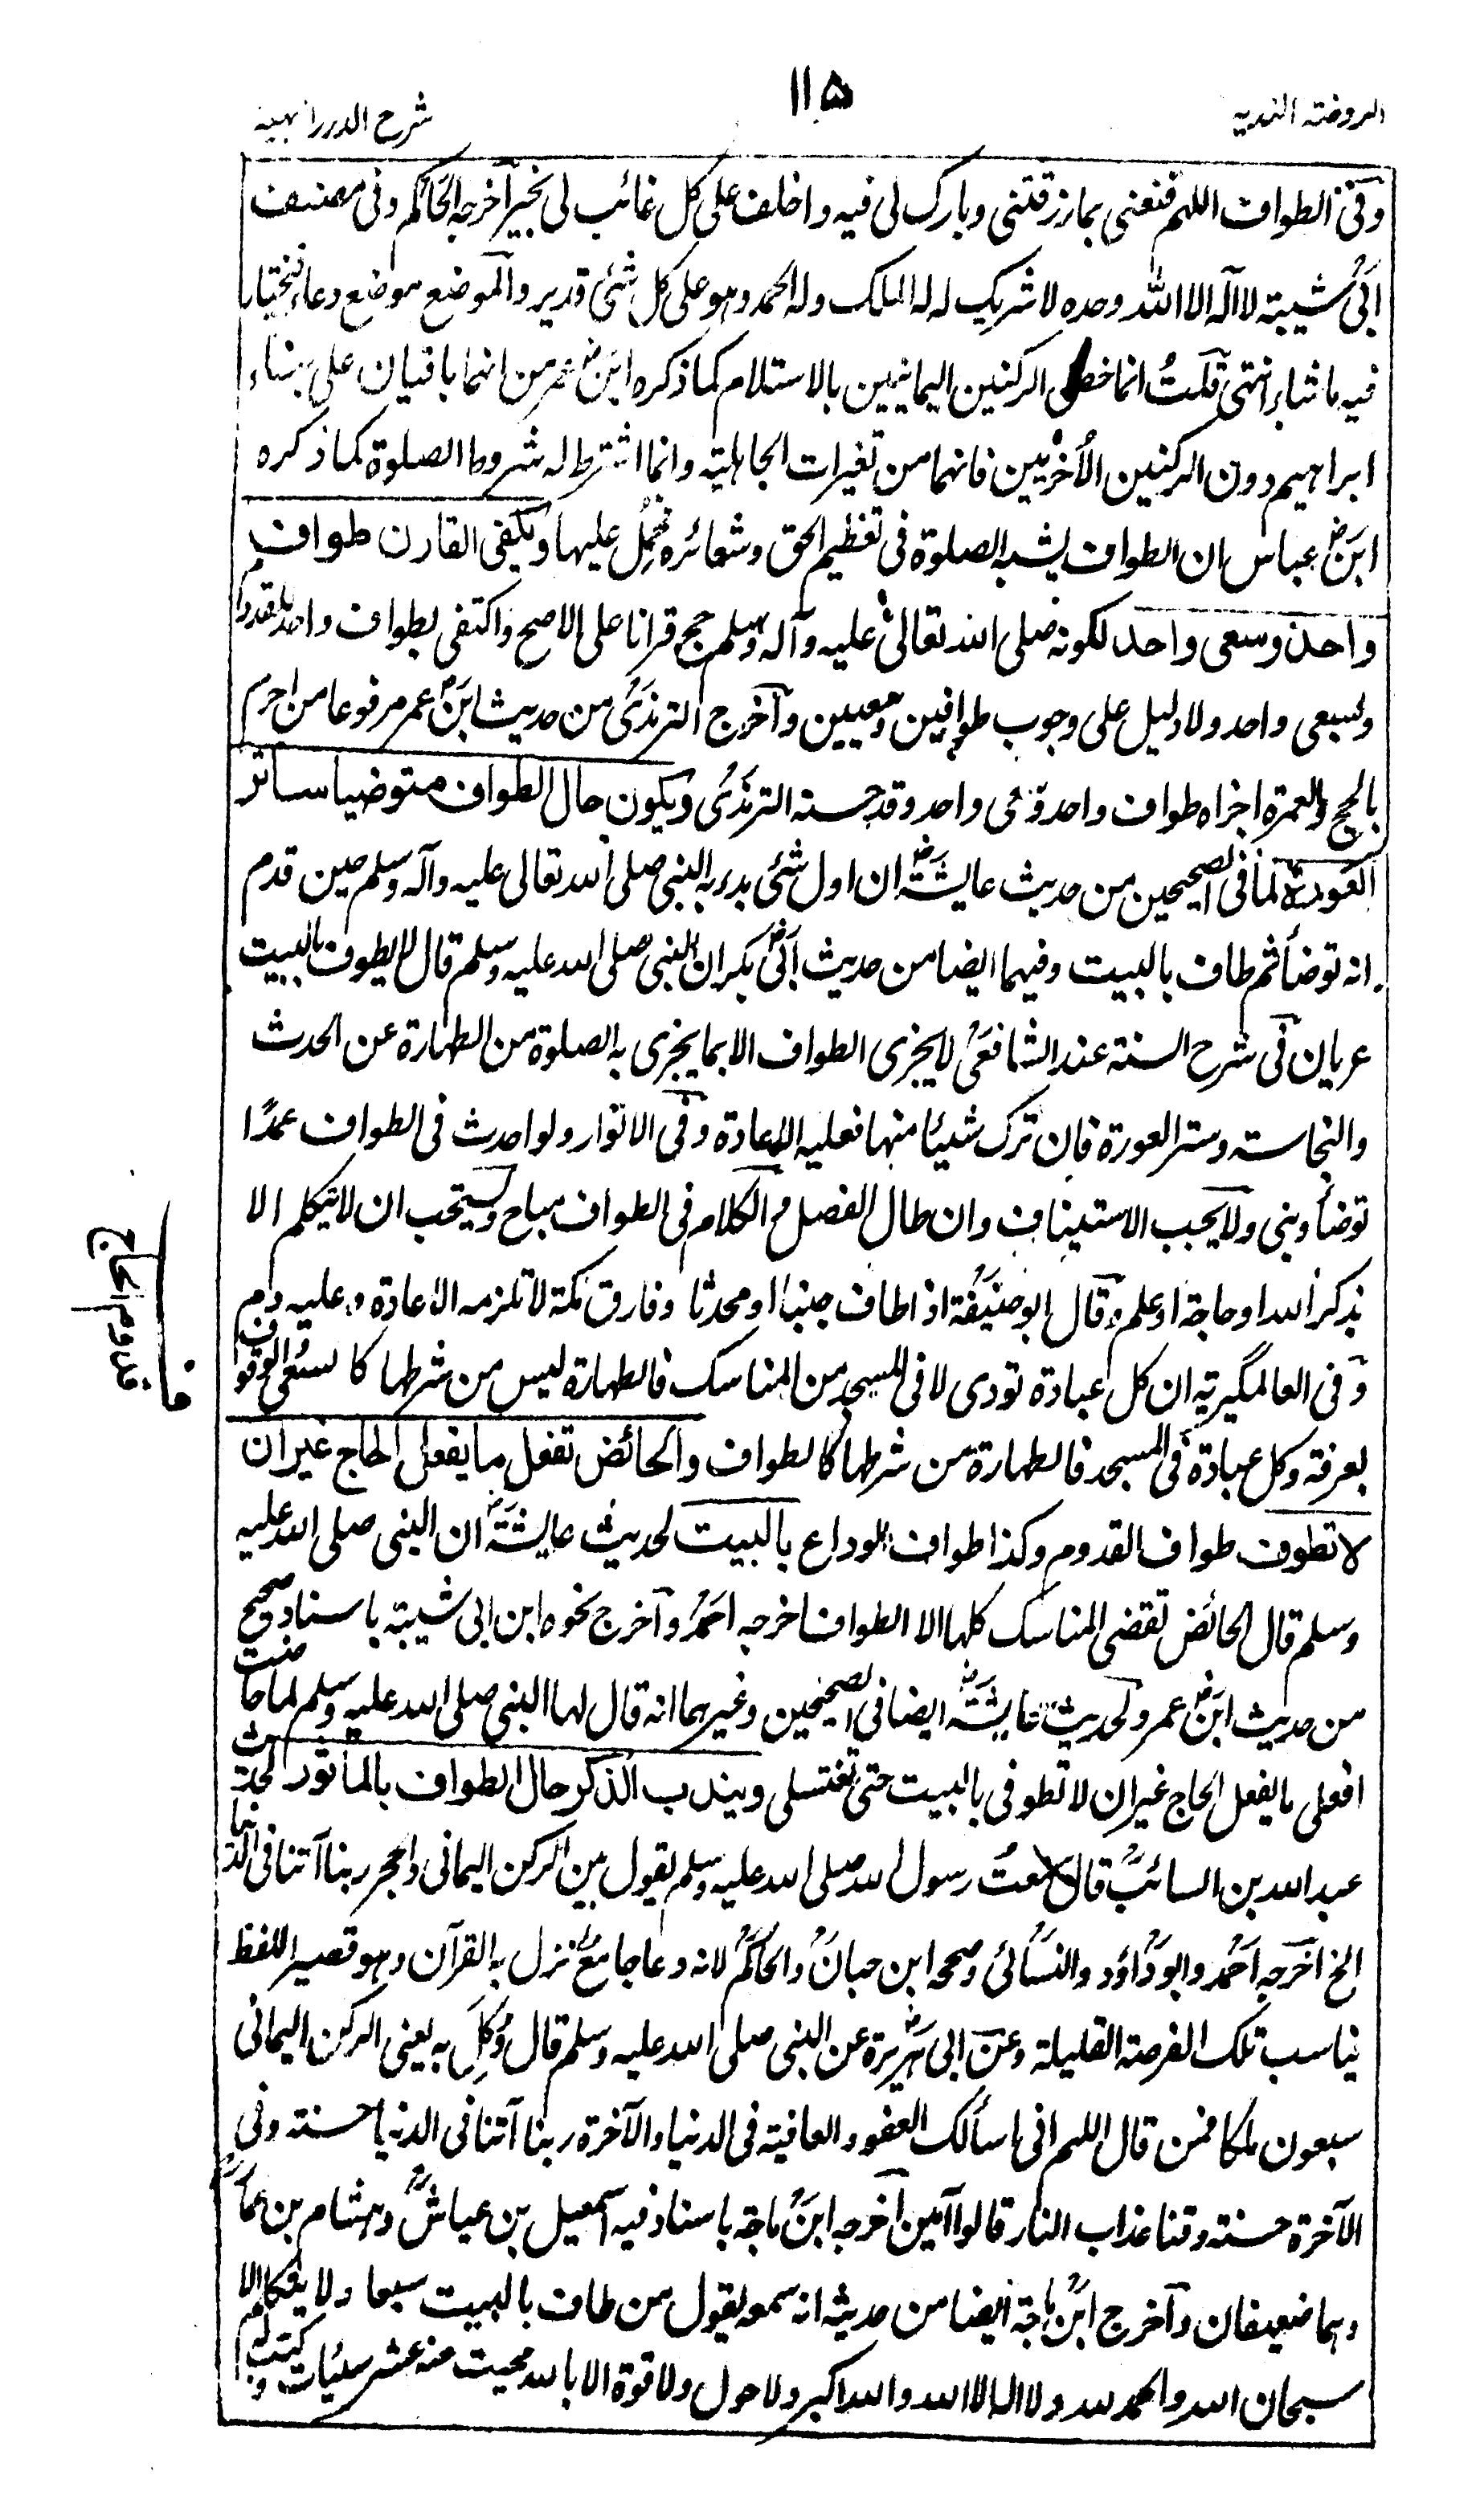 الروضة الندية
١١٥
شرح الدرر البهية
وفى الطواف اللهم قنعنى بما رزقتنى وبارك لى فيه واخلف على كل غائب لى بخير اخرجه الحاكم وفى مصنف
ابى شيبة لا اله الا الله وحده لا شريك له له الملك وله الحمد وهو على كل شئ قدير والموضع موضع دعاء فيختار
فيه ما شاء انتهى قلت انما خص الركنين اليمانيين بالاستلام كما ذكره ابن عمر من انهما باقيان على بناء
ابراهيم دون الركنين الأخريين فانهما من تغيرات الجاهلية وانما اشترط له شروط الصلوة كما ذكره
ابن عباس ان الطواف يشبه الصلوة فى تعظيم الحق وشعائره فحمل عليها ويكفى القارن طواف
واحد وسعى واحد لكونه صلى الله تعالى عليه وآله وسلم حج قرانا على الاصح واكتفى بطواف واحد للقدوم
وبسعى واحد ولا دليل على وجوب طوافين وسعيين وآخرج الترمذى من حديث ابن عمر مرفوعا من احرم
بالحج والعمرة اجزاه طواف واحد وسعى واحد وقد حسنه الترمذى ويكون حال الطواف متوضيا ساتر
العورة لما فى الصحيحين من حديث عايشة ان اول شئ بدء به النبى صلى الله تعالى عليه وآله وسلم حين قدم
انه توضأ ثم طاف بالبيت وفيهما ايضا من حديث ابى بكر ان النبى صلى الله عليه وسلم قال لا يطوف بالبيت
عريان فى شرح السنة عند الشافعى لا يجزى الطواف الا بما يجزى به الصلوة من الطهارة عن الحدث
والنجاسة وستر العورة فان ترك شيئا منها فعليه الاعادة وفى الانوار ولو احدث فى الطواف عمدًا
توضأ وبنى ولا يجب الاستيناف وان طال الفصل م الكلام فى الطواف مباح ويستحب ان لا يتكلم الا
بذكر الله او حاجة او علم وقال ابو حنيفة اذا طاف جنبا او محدثا وفارق مكة لا تلزمه الاعادة وعليه دم
وفى العالمگيرية ان كل عبادة تودى لا فى المسجد من المناسك فالطهارة ليس من شرطها كالسعى والوقوف
بعرفة وكل عبادة فى المسجد فالطهارة من شرطها كالطواف والحائض تفعل ما يفعل الحاج غير ان
لا تطوف طواف القدوم وكذا طواف الوداع بالبيت لحديث عايشة ان النبى صلى الله عليه
وسلم قال الحائض تقضى المناسك كلها الا الطواف اخرجه احمد وآخرج نحوه ابن ابى شيبة باسناد صحيح
من حديث ابن عمر ولحديث عايشة ايضا فى الصحيحين وغيرهما انه قال لها النبى صلى الله عليه وسلم لما حاضت
افعلى ما يفعل الحاج غير ان لا تطوفى بالبيت حتى تغتسلى ويندب الذكر حال الطواف بالماثور لحديث
عبد الله بن السائب قال سمعت رسول الله صلى الله عليه وسلم يقول بين الركن اليمانى والحجر ربنا آتنا فى الدنيا
الخ اخرجه احمد وابو داؤد والنسائى وصححه ابن حبان والحاكم لانه دعا جامع نزل به القرآن وهو قصير اللفظ
يناسب تلك الفرصة القليلة وعن ابى هريرة عن النبى صلى الله عليه وسلم قال وُكِلَ به يعنى الركن اليمانى
سبعون ملكا فمن قال اللهم انى اسألك العفو والعافية فى الدنيا والآخرة ربنا آتنا فى الدنيا حسنة وفى
الآخرة حسنة وقنا عذاب النار قالوا آمين اخرجه ابن ماجة باسناد فيه اسمعيل بن عياش وهشام بن عمار
وهما ضعيفان وآخرج ابن ماجة ايضا من حديثه انه سمعه يقول من طاف بالبيت سبعا ولا يتكلم الا
سبحان الله والحمد لله ولا اله الا الله والله اكبر ولا حول ولا قوة الا بالله محيت عنه عشر سيئات وكتب له
قدوم الحاج